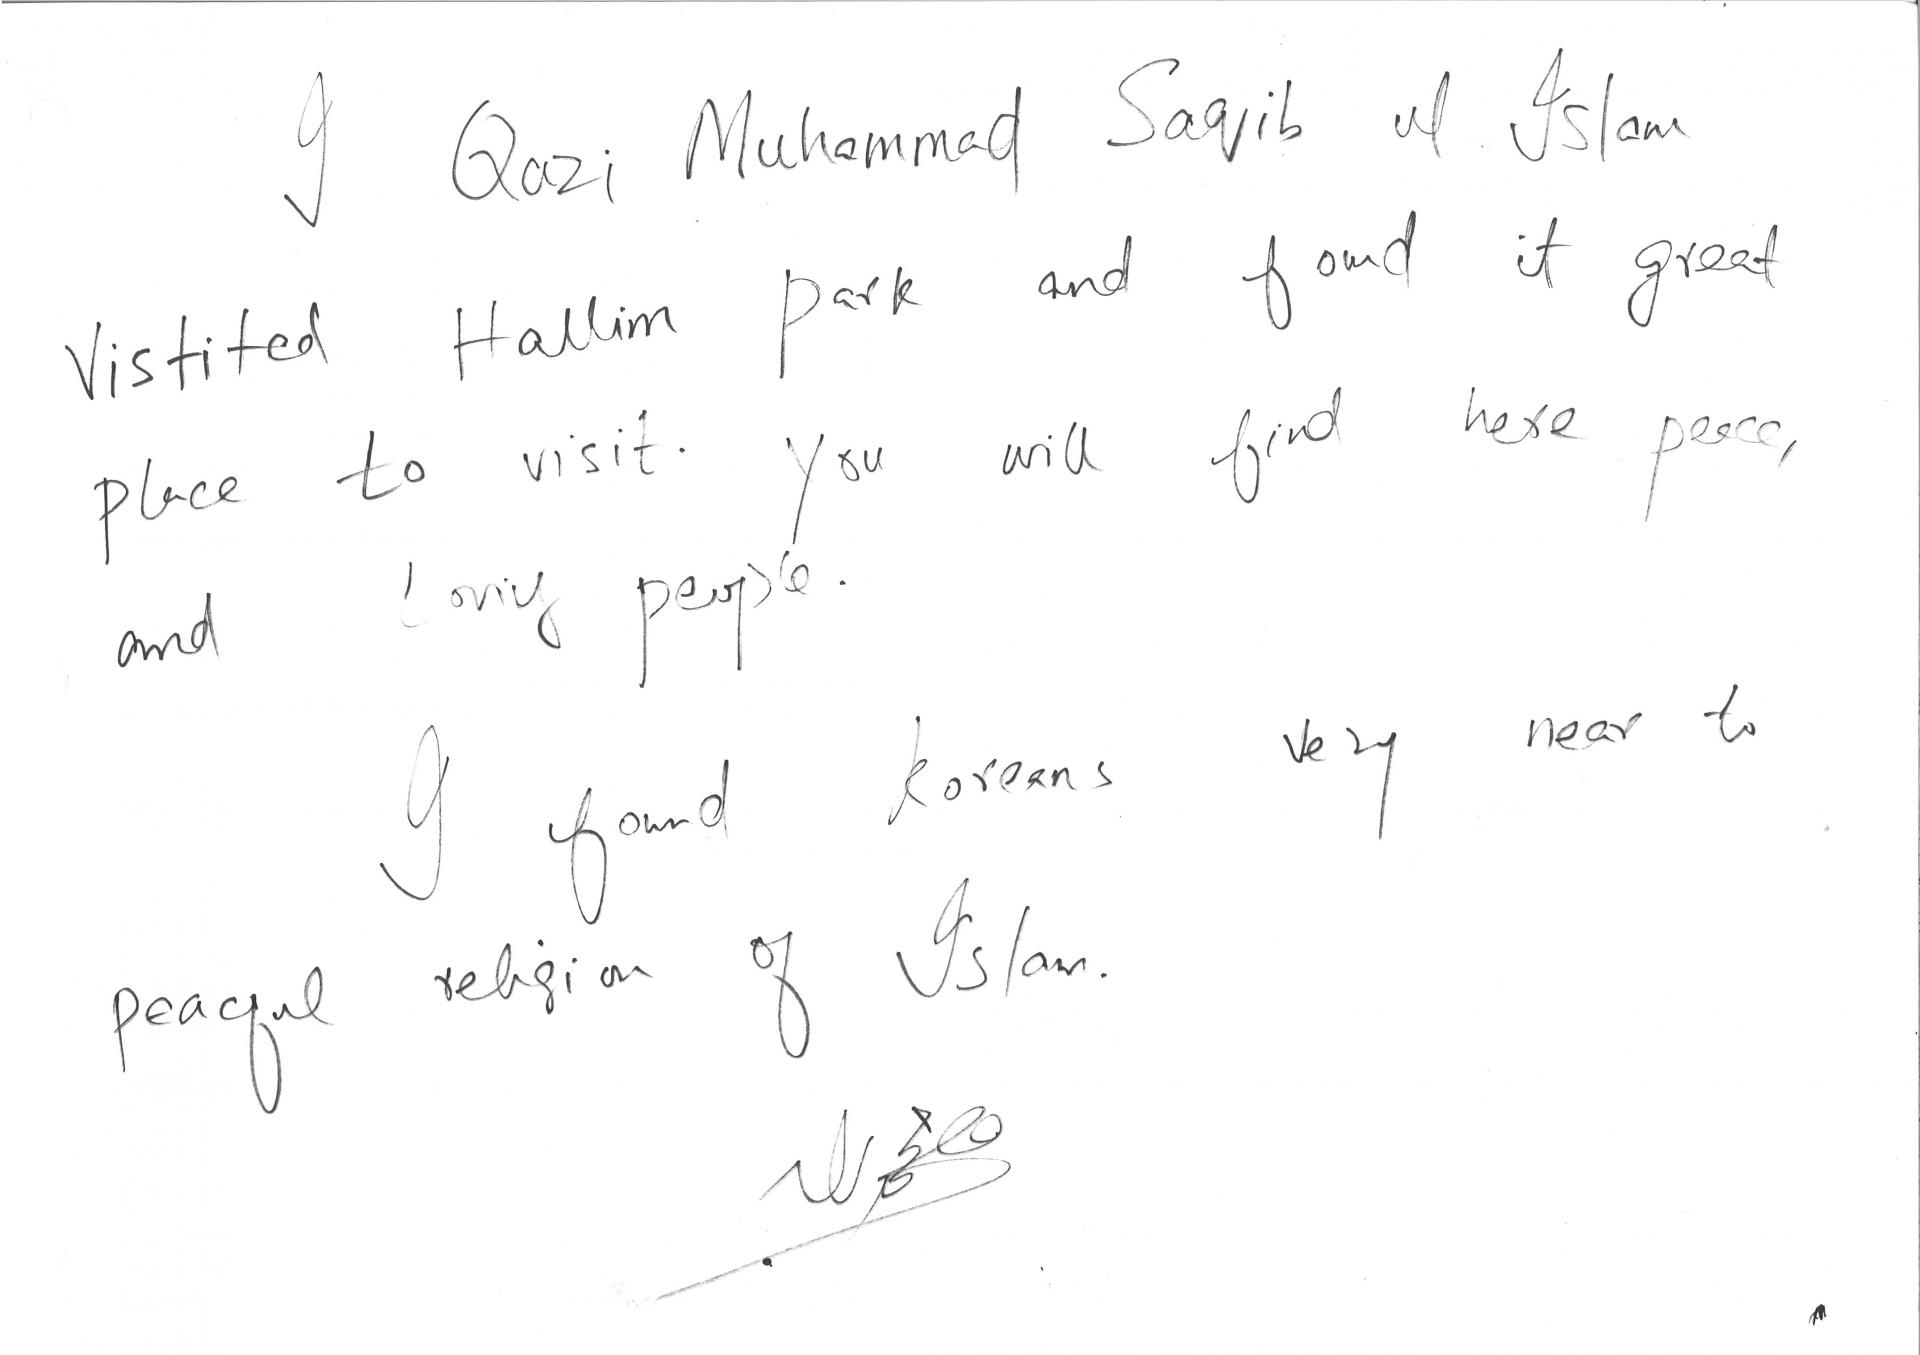 I Qazi Muhammad Saqib ul Islam
Vistited Hallim park and found it great
place to visit. You will find here peace,
and loving people.
I found koreans very near to
peaceful religion of Islam.